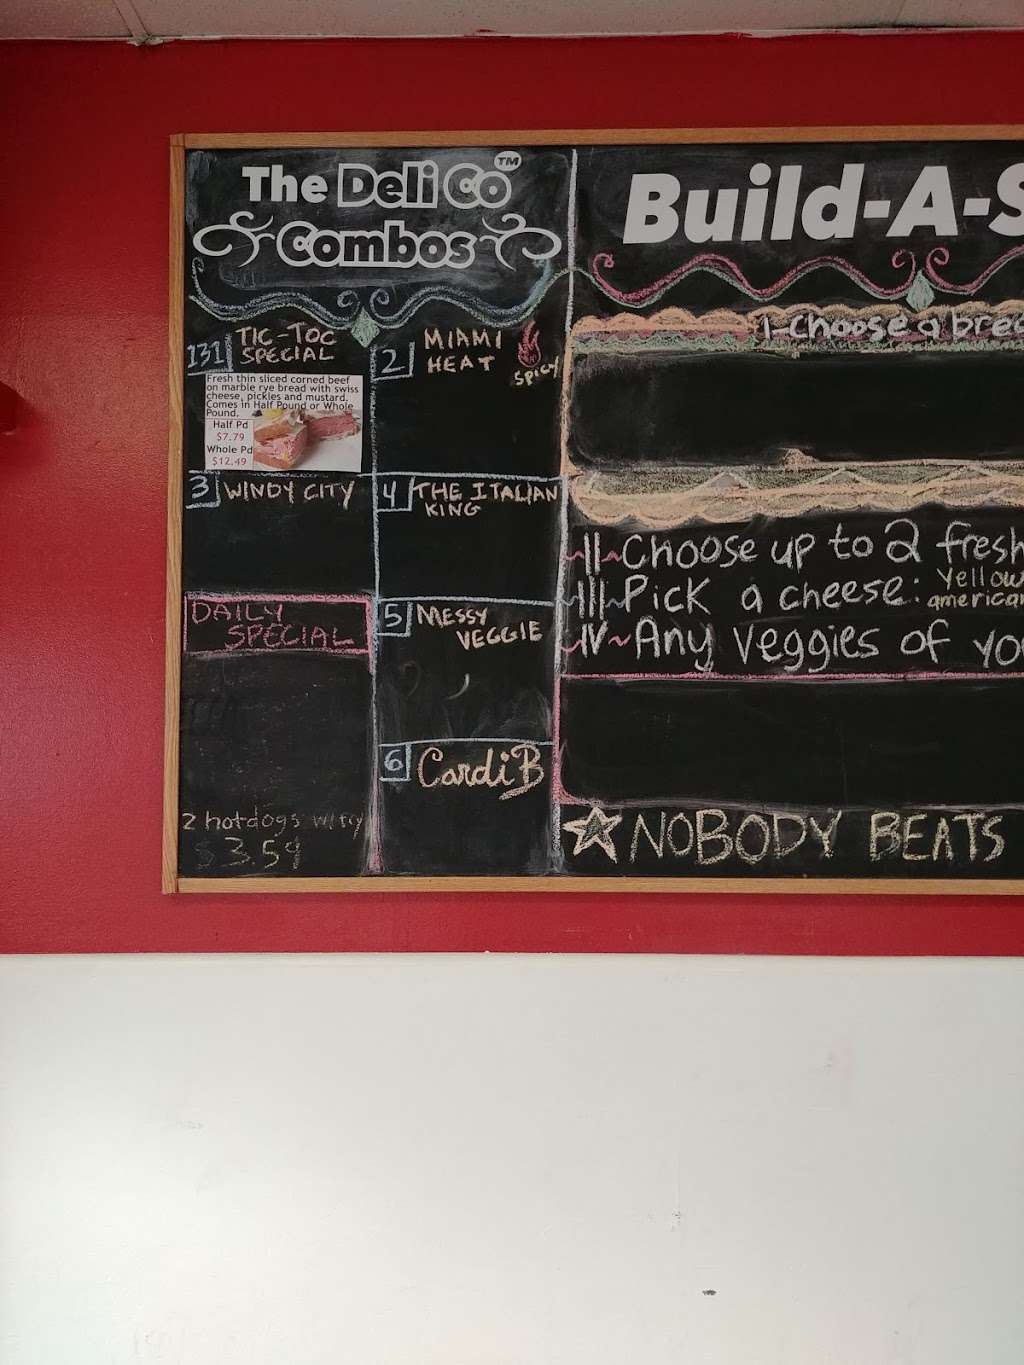 The Deli Co™
Combos
131 TIC-TOC
SPECIAL
Fresh thin sliced corned beef
on marble rye bread with swiss
cheese, pickles and mustard.
Comes in Half Pound or Whole
Pound.
Half Pd
$7.79
Whole Pd
$12.49
2 MIAMI
HEAT
SPICY
3 WINDY CITY
4 THE ITALIAN
KING
DAILY
SPECIAL
2 hotdogs w/fry
$3.59
5 MESSY
VEGGIE
6 Cardi B
Build-A-S
I-Choose a brea
II~Choose up to 2 fresh
III~Pick a cheese: Yellow
american
IV~Any veggies of you
NOBODY BEATS